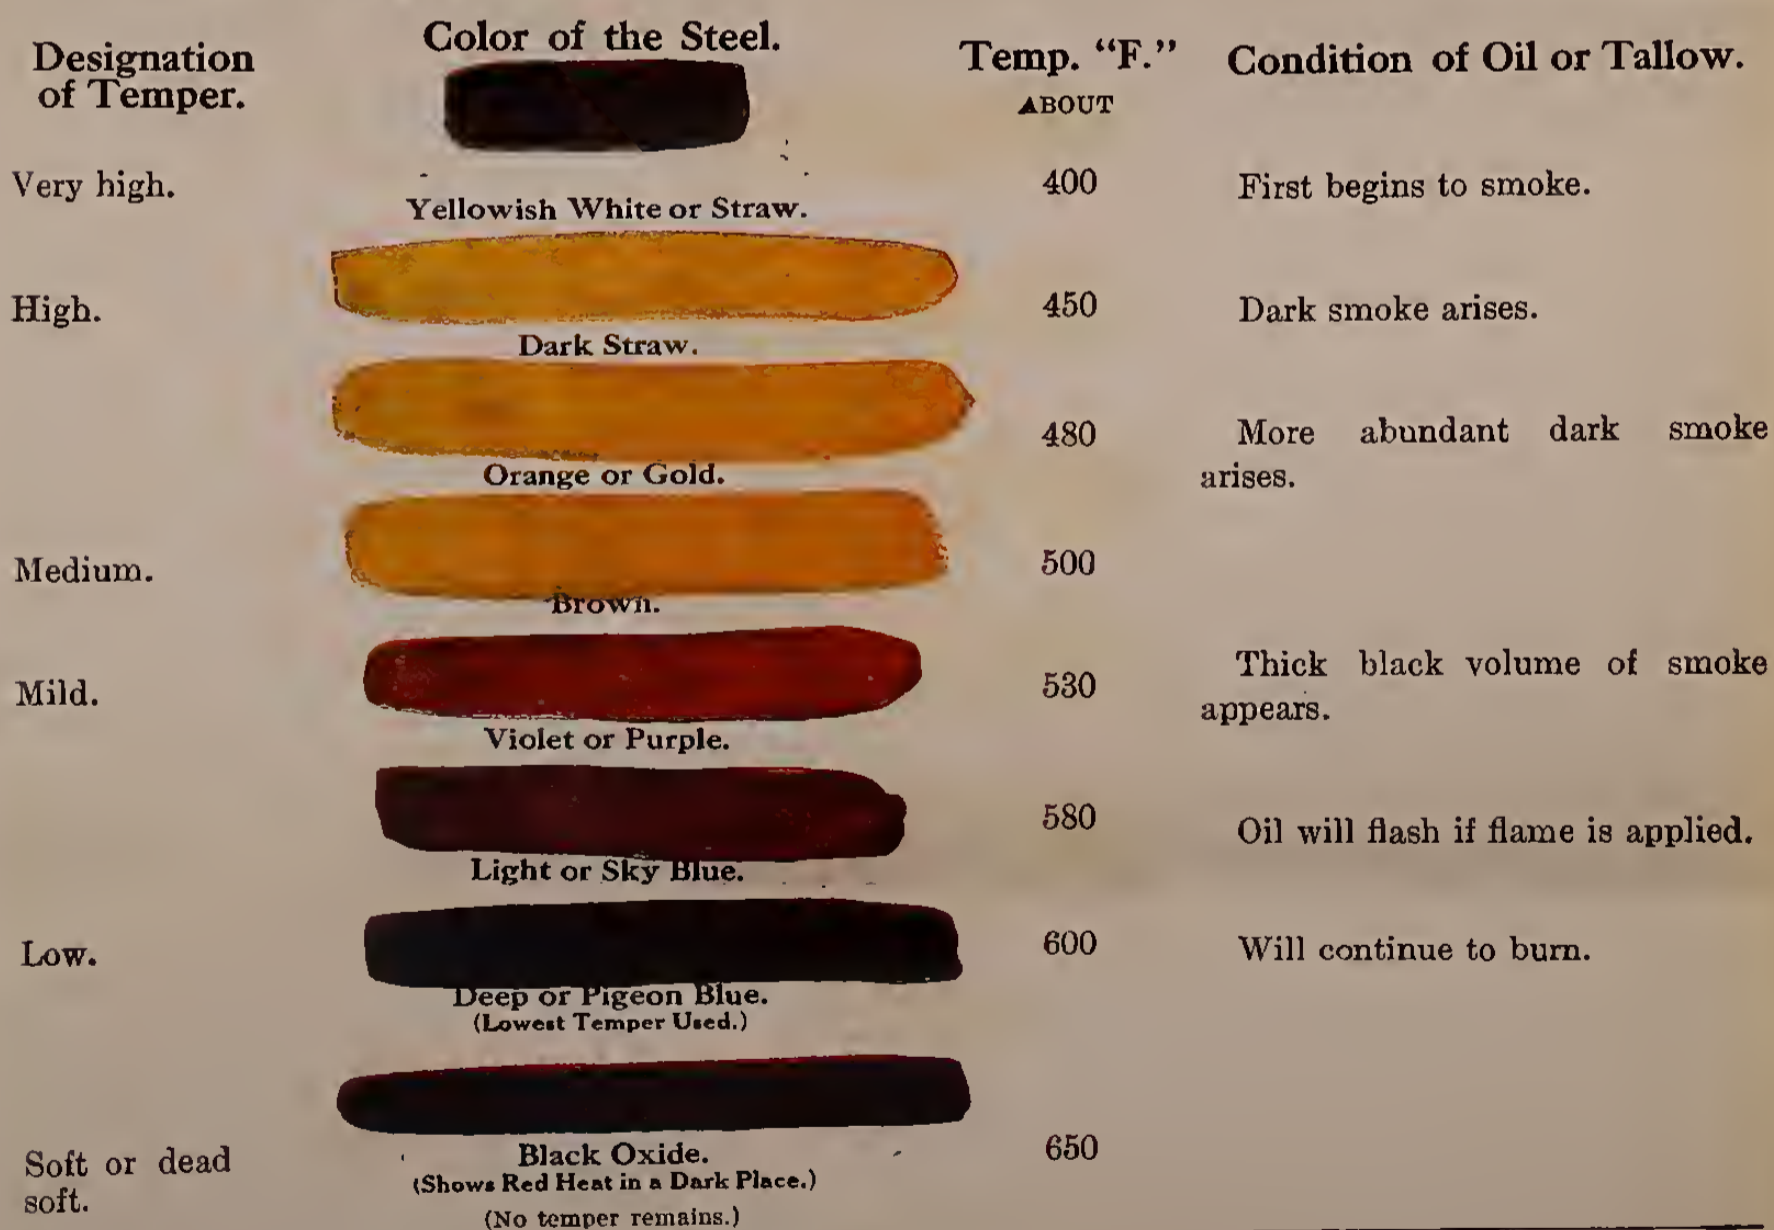 Designation of Temper.
Color of the Steel.
Temp. “F.”
Condition of Oil or Tallow.
ABOUT
Very high.
Yellowish White or Straw.
400
First begins to smoke.
High.
Dark Straw.
450
Dark smoke arises.
Orange or Gold.
480
More abundant dark smoke
arises.
Medium.
Brown.
500
Mild.
Violet or Purple.
530
Thick black volume of smoke
appears.
Light or Sky Blue.
580
Oil will flash if flame is applied.
Low.
Deep or Pigeon Blue.
(Lowest Temper Used.)
600
Will continue to burn.
Soft or dead
soft.
Black Oxide.
(Shows Red Heat in a Dark Place.)
(No temper remains.)
650